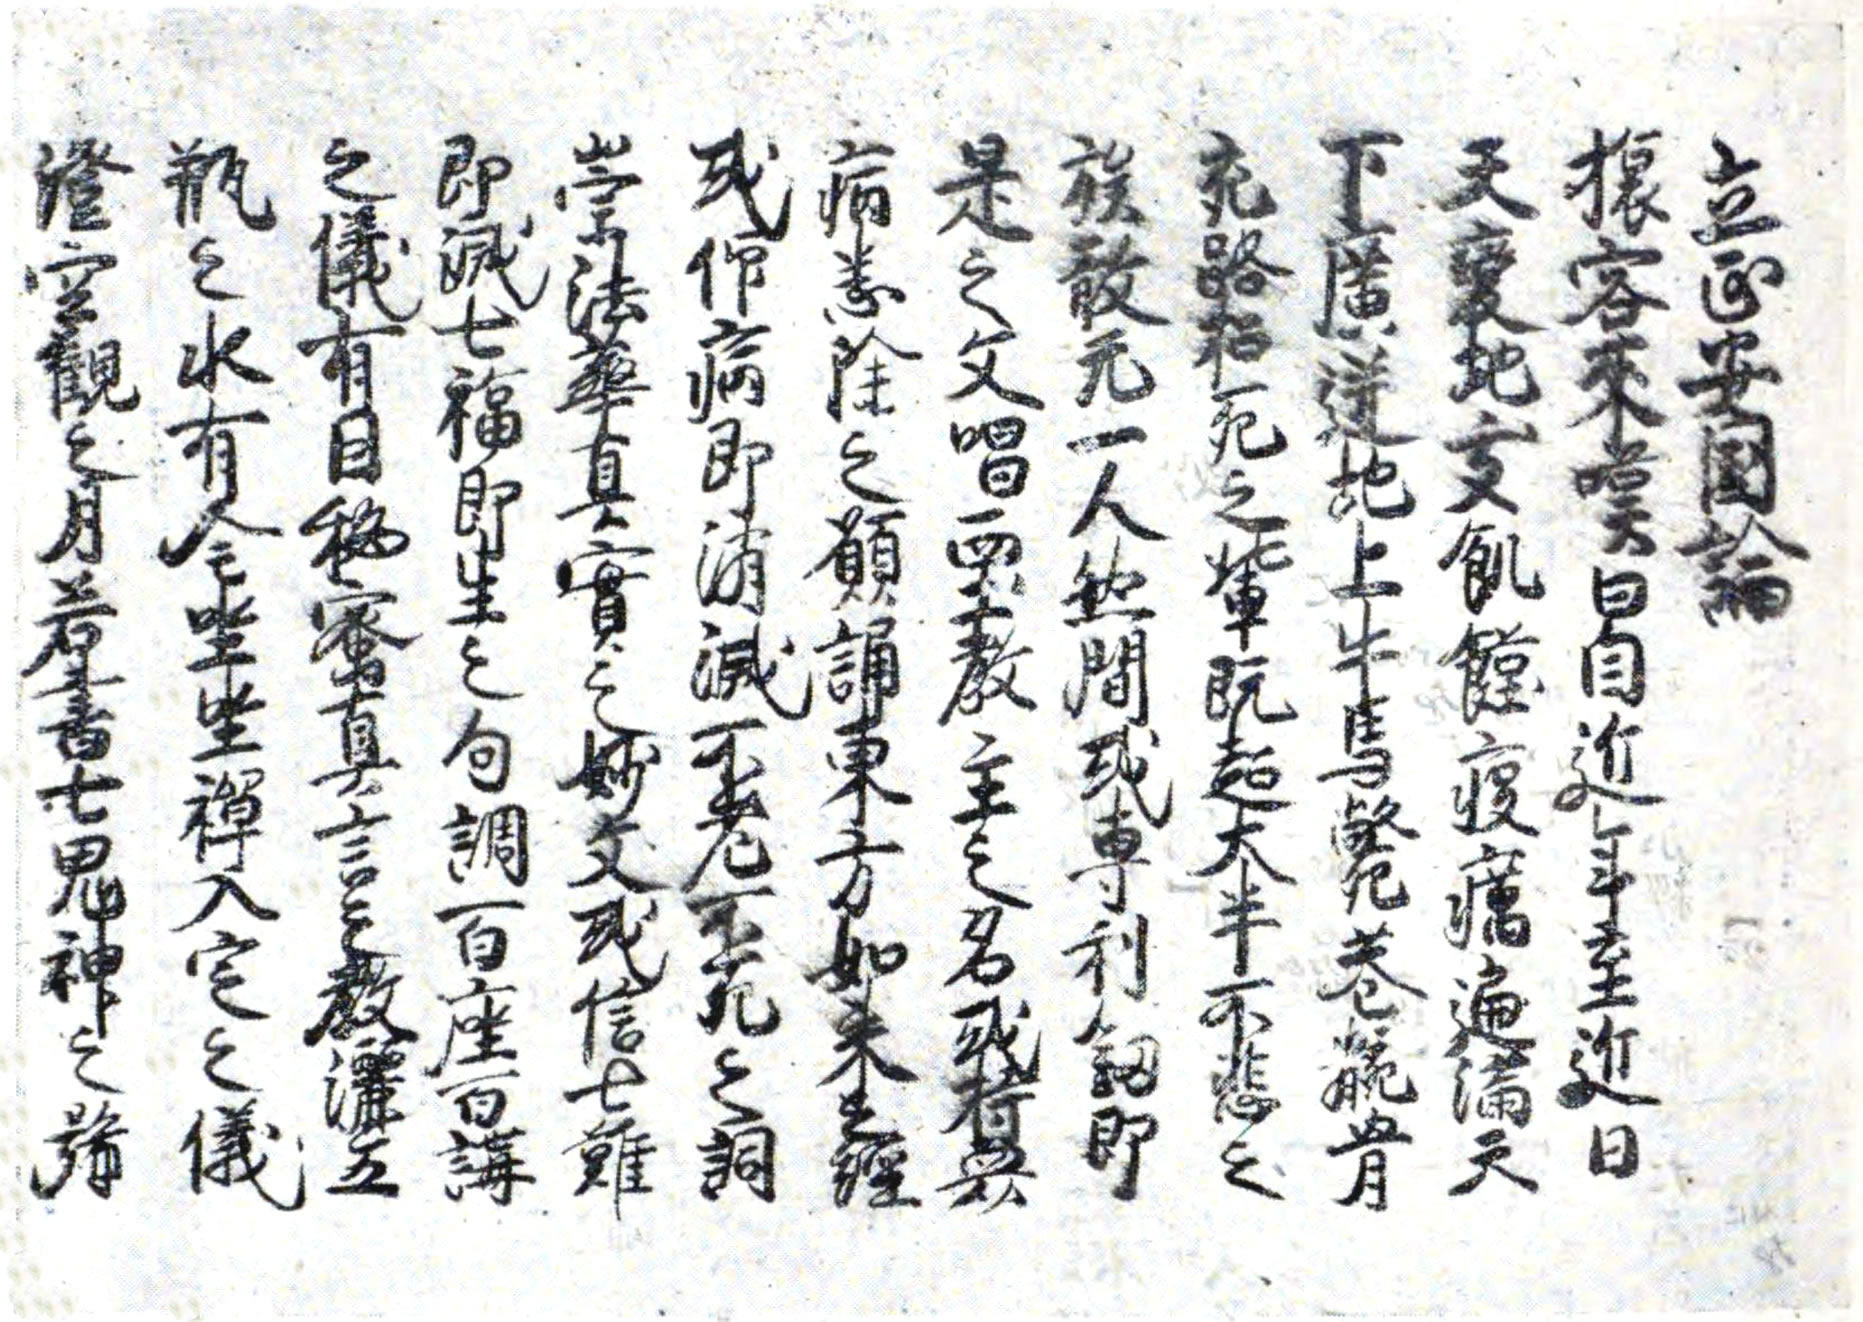 立正安國論
旅客來嘆曰自近年至近日
天變地夭飢饉疫癘遍滿天
下廣迸地上牛馬斃巷骸骨
充路招死之輩既超大半不悲之
族敢无一人然間或專利劔即
是之文唱西土教主之名或持衆
病悉除之願誦東方如來之經
或仰病即消滅不老不死之詞
崇法華真實之妙文或信七難
即滅七福即生之句調百座百講
之儀有因秘密真言之教灑五
瓶之水有全坐禪入定之儀
澄空觀之月若書七鬼神之号